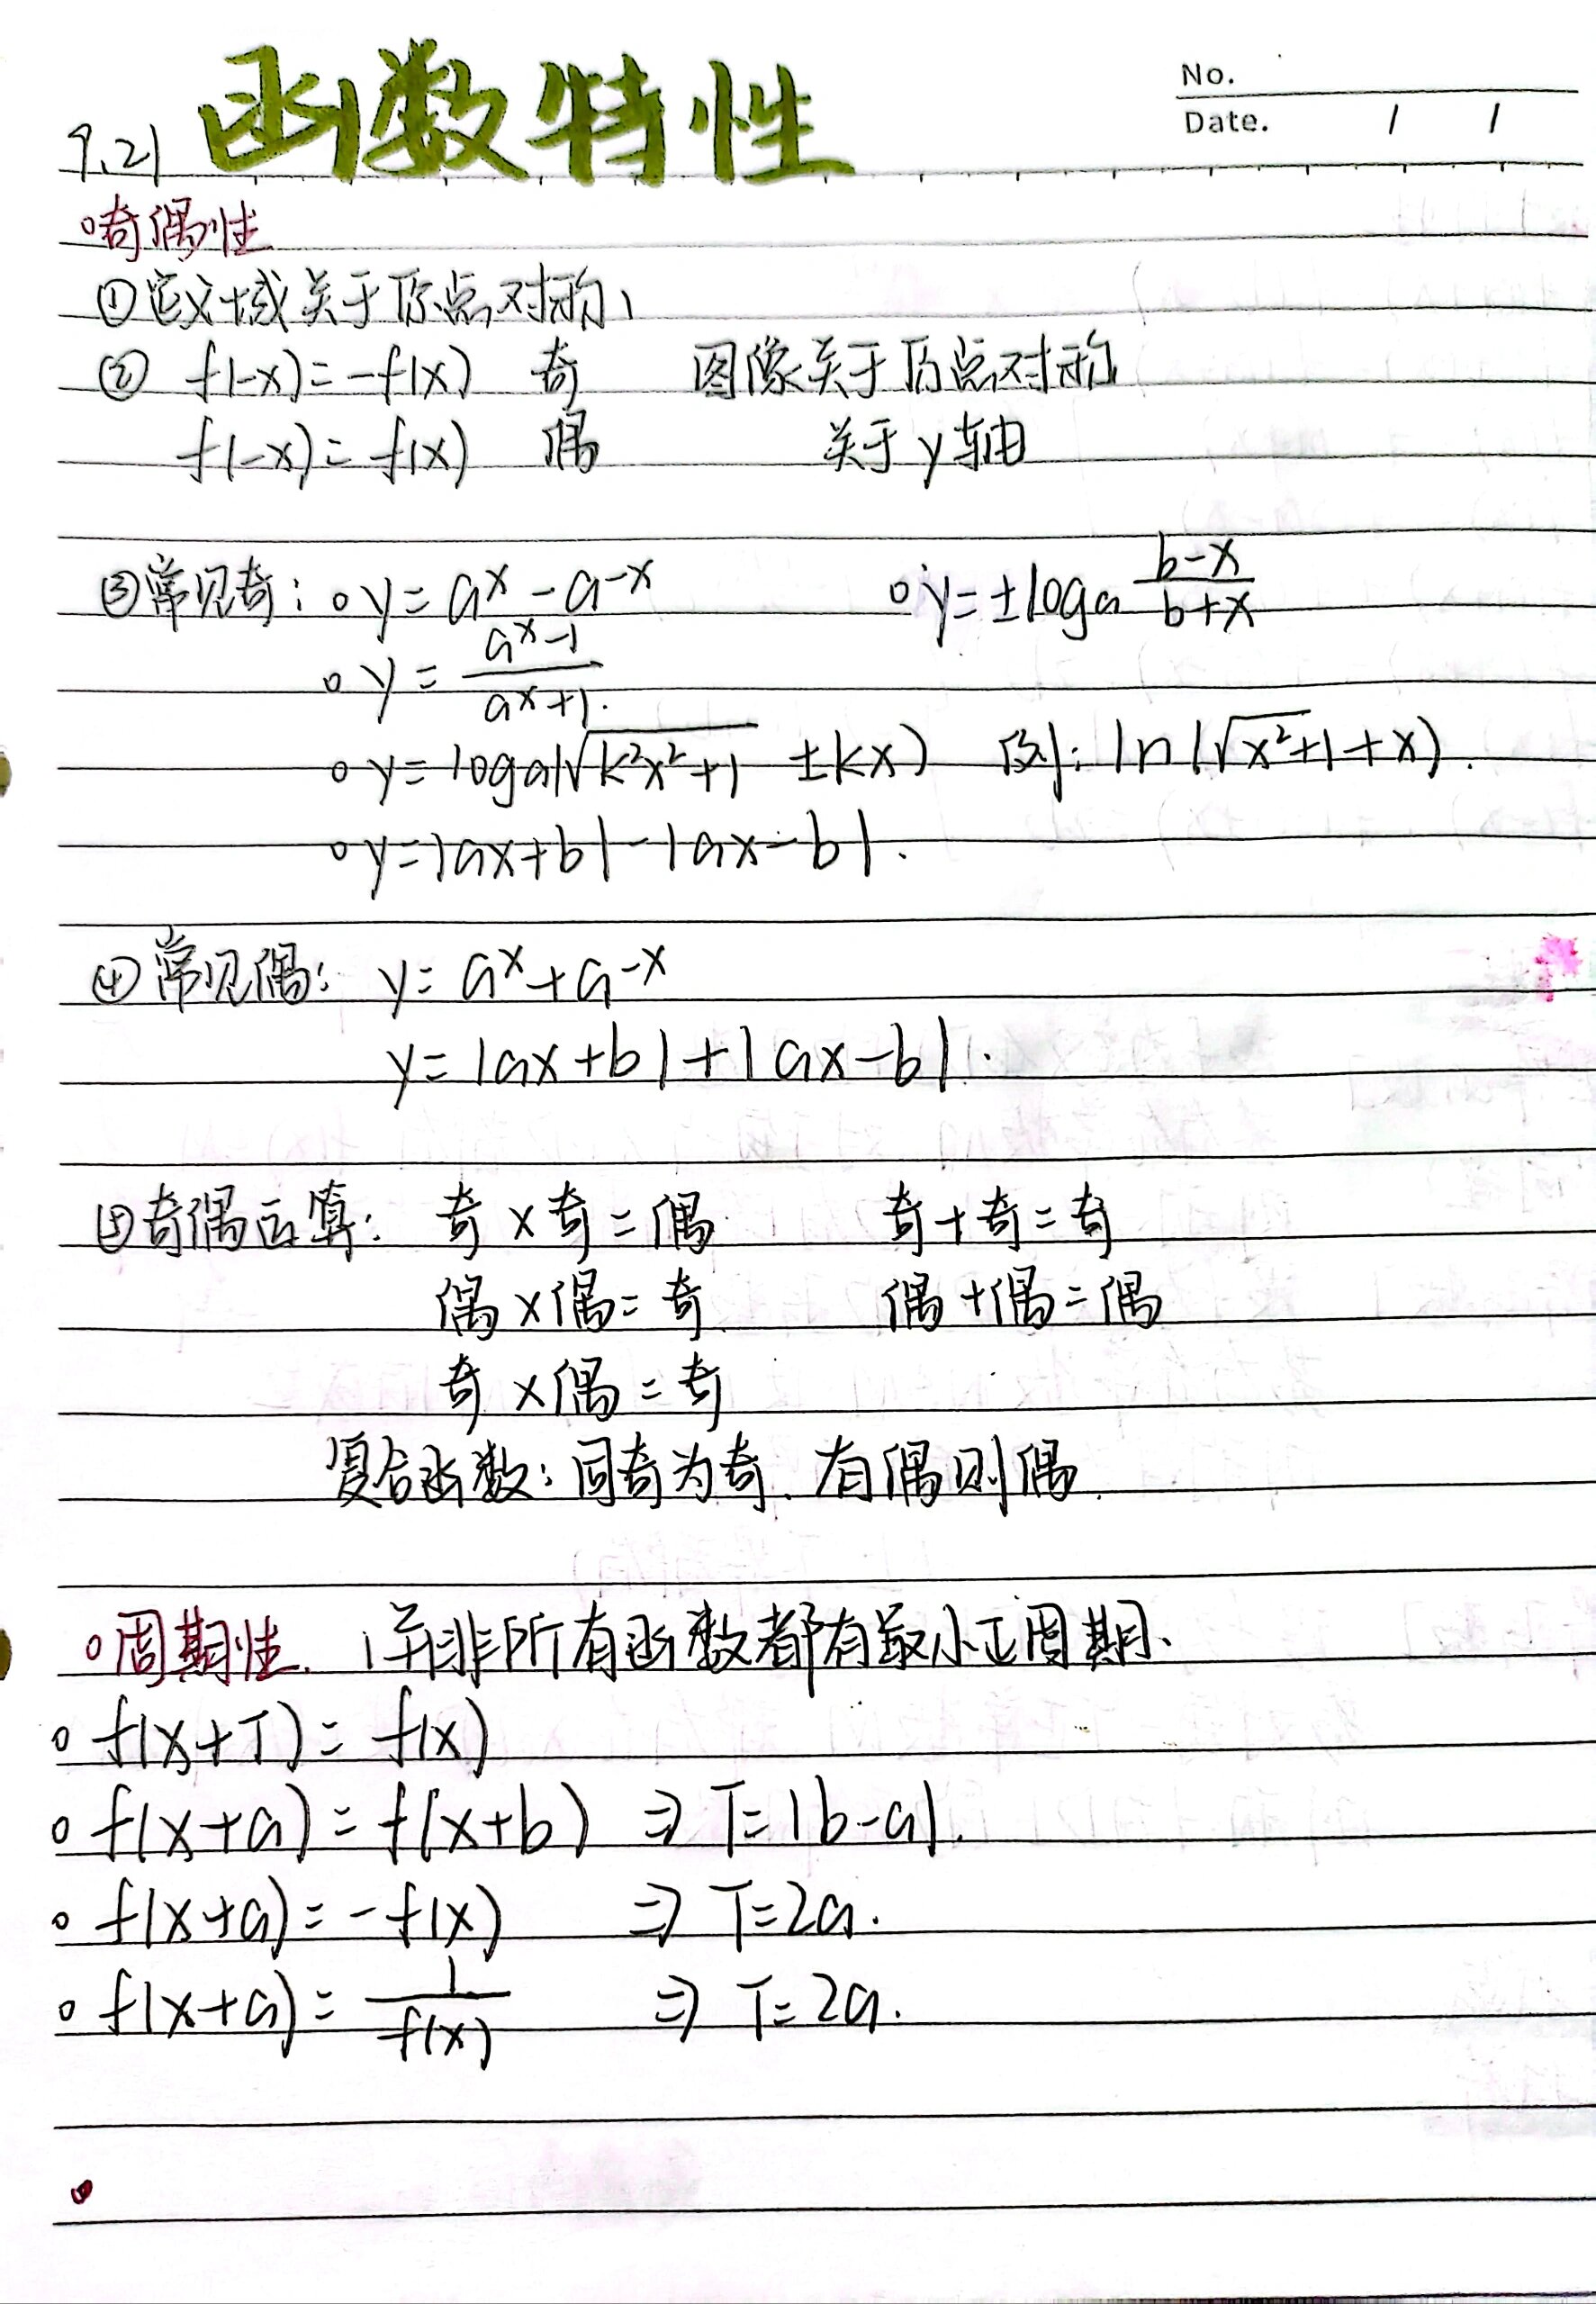 No.
Date. / /
9.21 函数特性
○奇偶性
①定义域关于原点对称、
② f(-x)=-f(x) 奇 图像关于原点对称
f(-x)=f(x) 偶 关于y轴
③常见奇: ○ y=a^x-a^-x ○ y=±loga (b-x)/(b+x)
○ y=(a^x-1)/(a^x+1).
○ y=loga(√(k²x²+1) ±kx) 例: ln(√(x²+1)+x).
○ y=|ax+b|-|ax-b|.
④常见偶: y=a^x+a^-x
y=|ax+b|+|ax-b|.
⑤奇偶运算: 奇×奇=偶 奇+奇=奇
偶×偶=奇 偶+偶=偶
奇×偶=奇
复合函数: 同奇为奇、有偶则偶.
○周期性. (并非所有函数都有最小正周期、
○ f(x+T)=f(x)
○ f(x+a)=f(x+b) ⇒ T=|b-a|.
○ f(x+a)=-f(x) ⇒ T=2a.
○ f(x+a)=1/f(x) ⇒ T=2a.